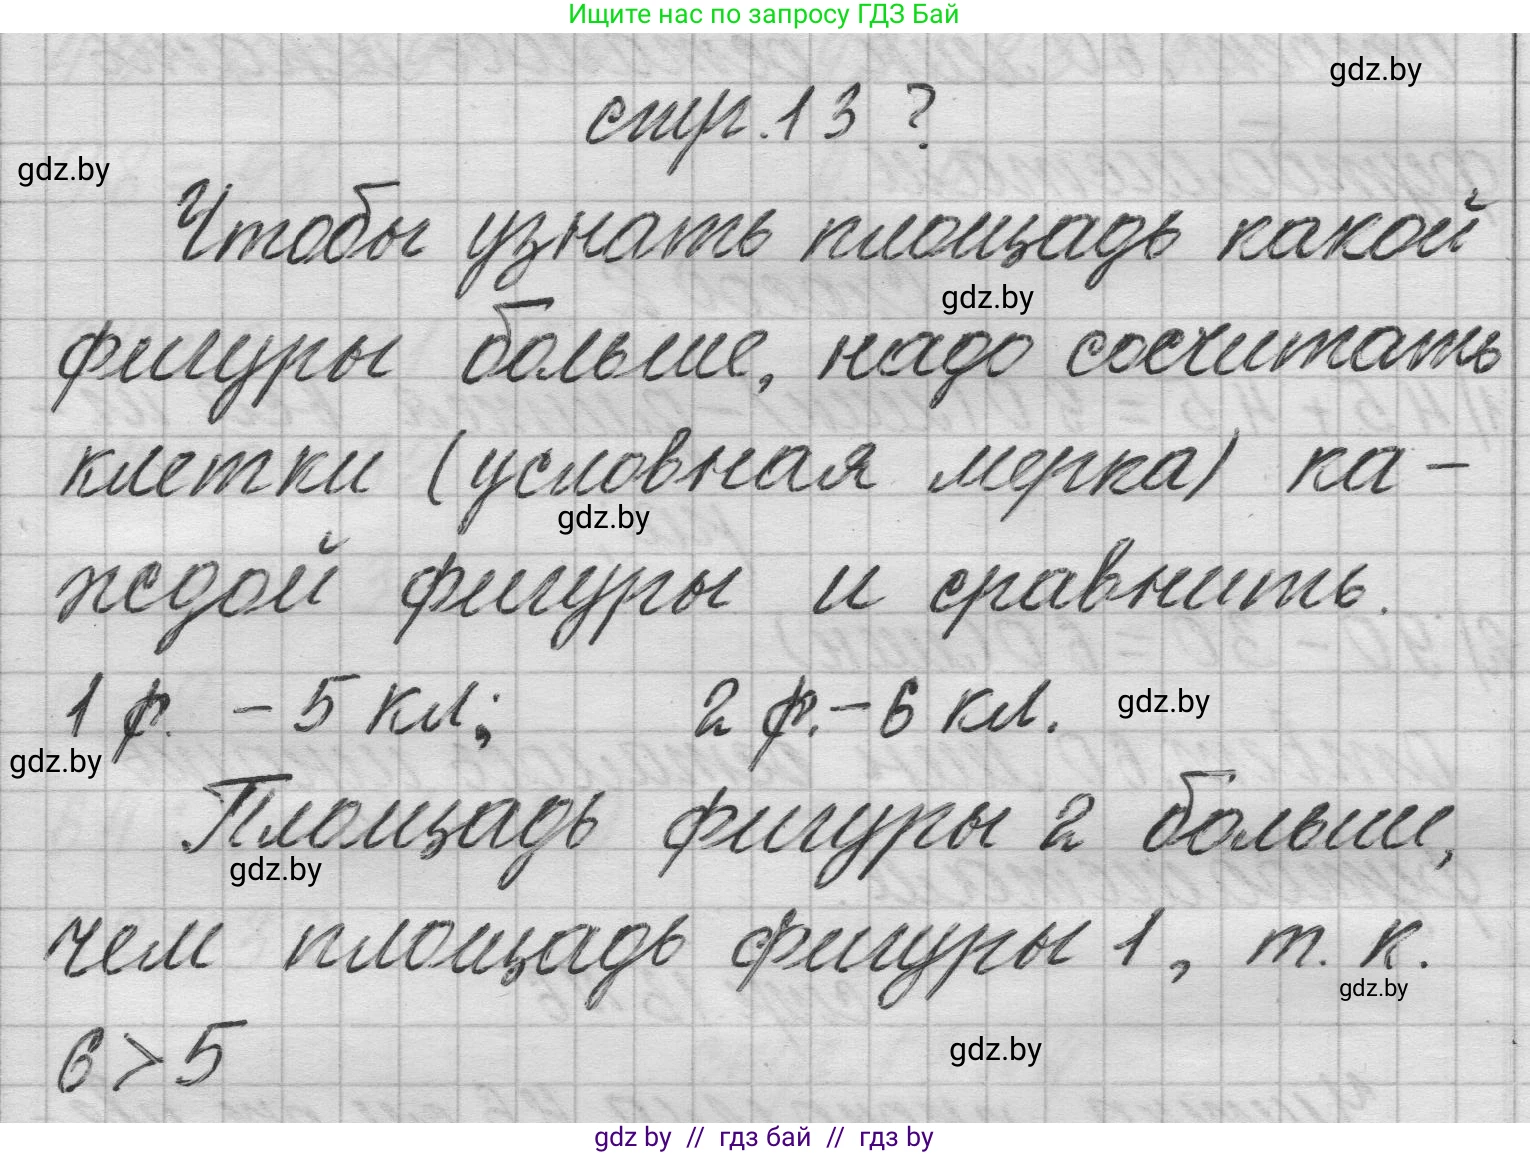 Ищите нас по запросу ГДЗ Бай
gdz.by
стр. 13 ?
gdz.by
Чтобы узнать площадь какой
gdz.by
фигуры больше, надо сосчитать
клетки (условная мерка) ка-
gdz.by
ждой фигуры и сравнить.
1 ф. - 5 кл; 2 ф. - 6 кл.
gdz.by
gdz.by
Площадь фигуры 2 больше,
gdz.by
чем площадь фигуры 1, т. к.
gdz.by
6 > 5
gdz.by
gdz by // гдз бай // гдз by